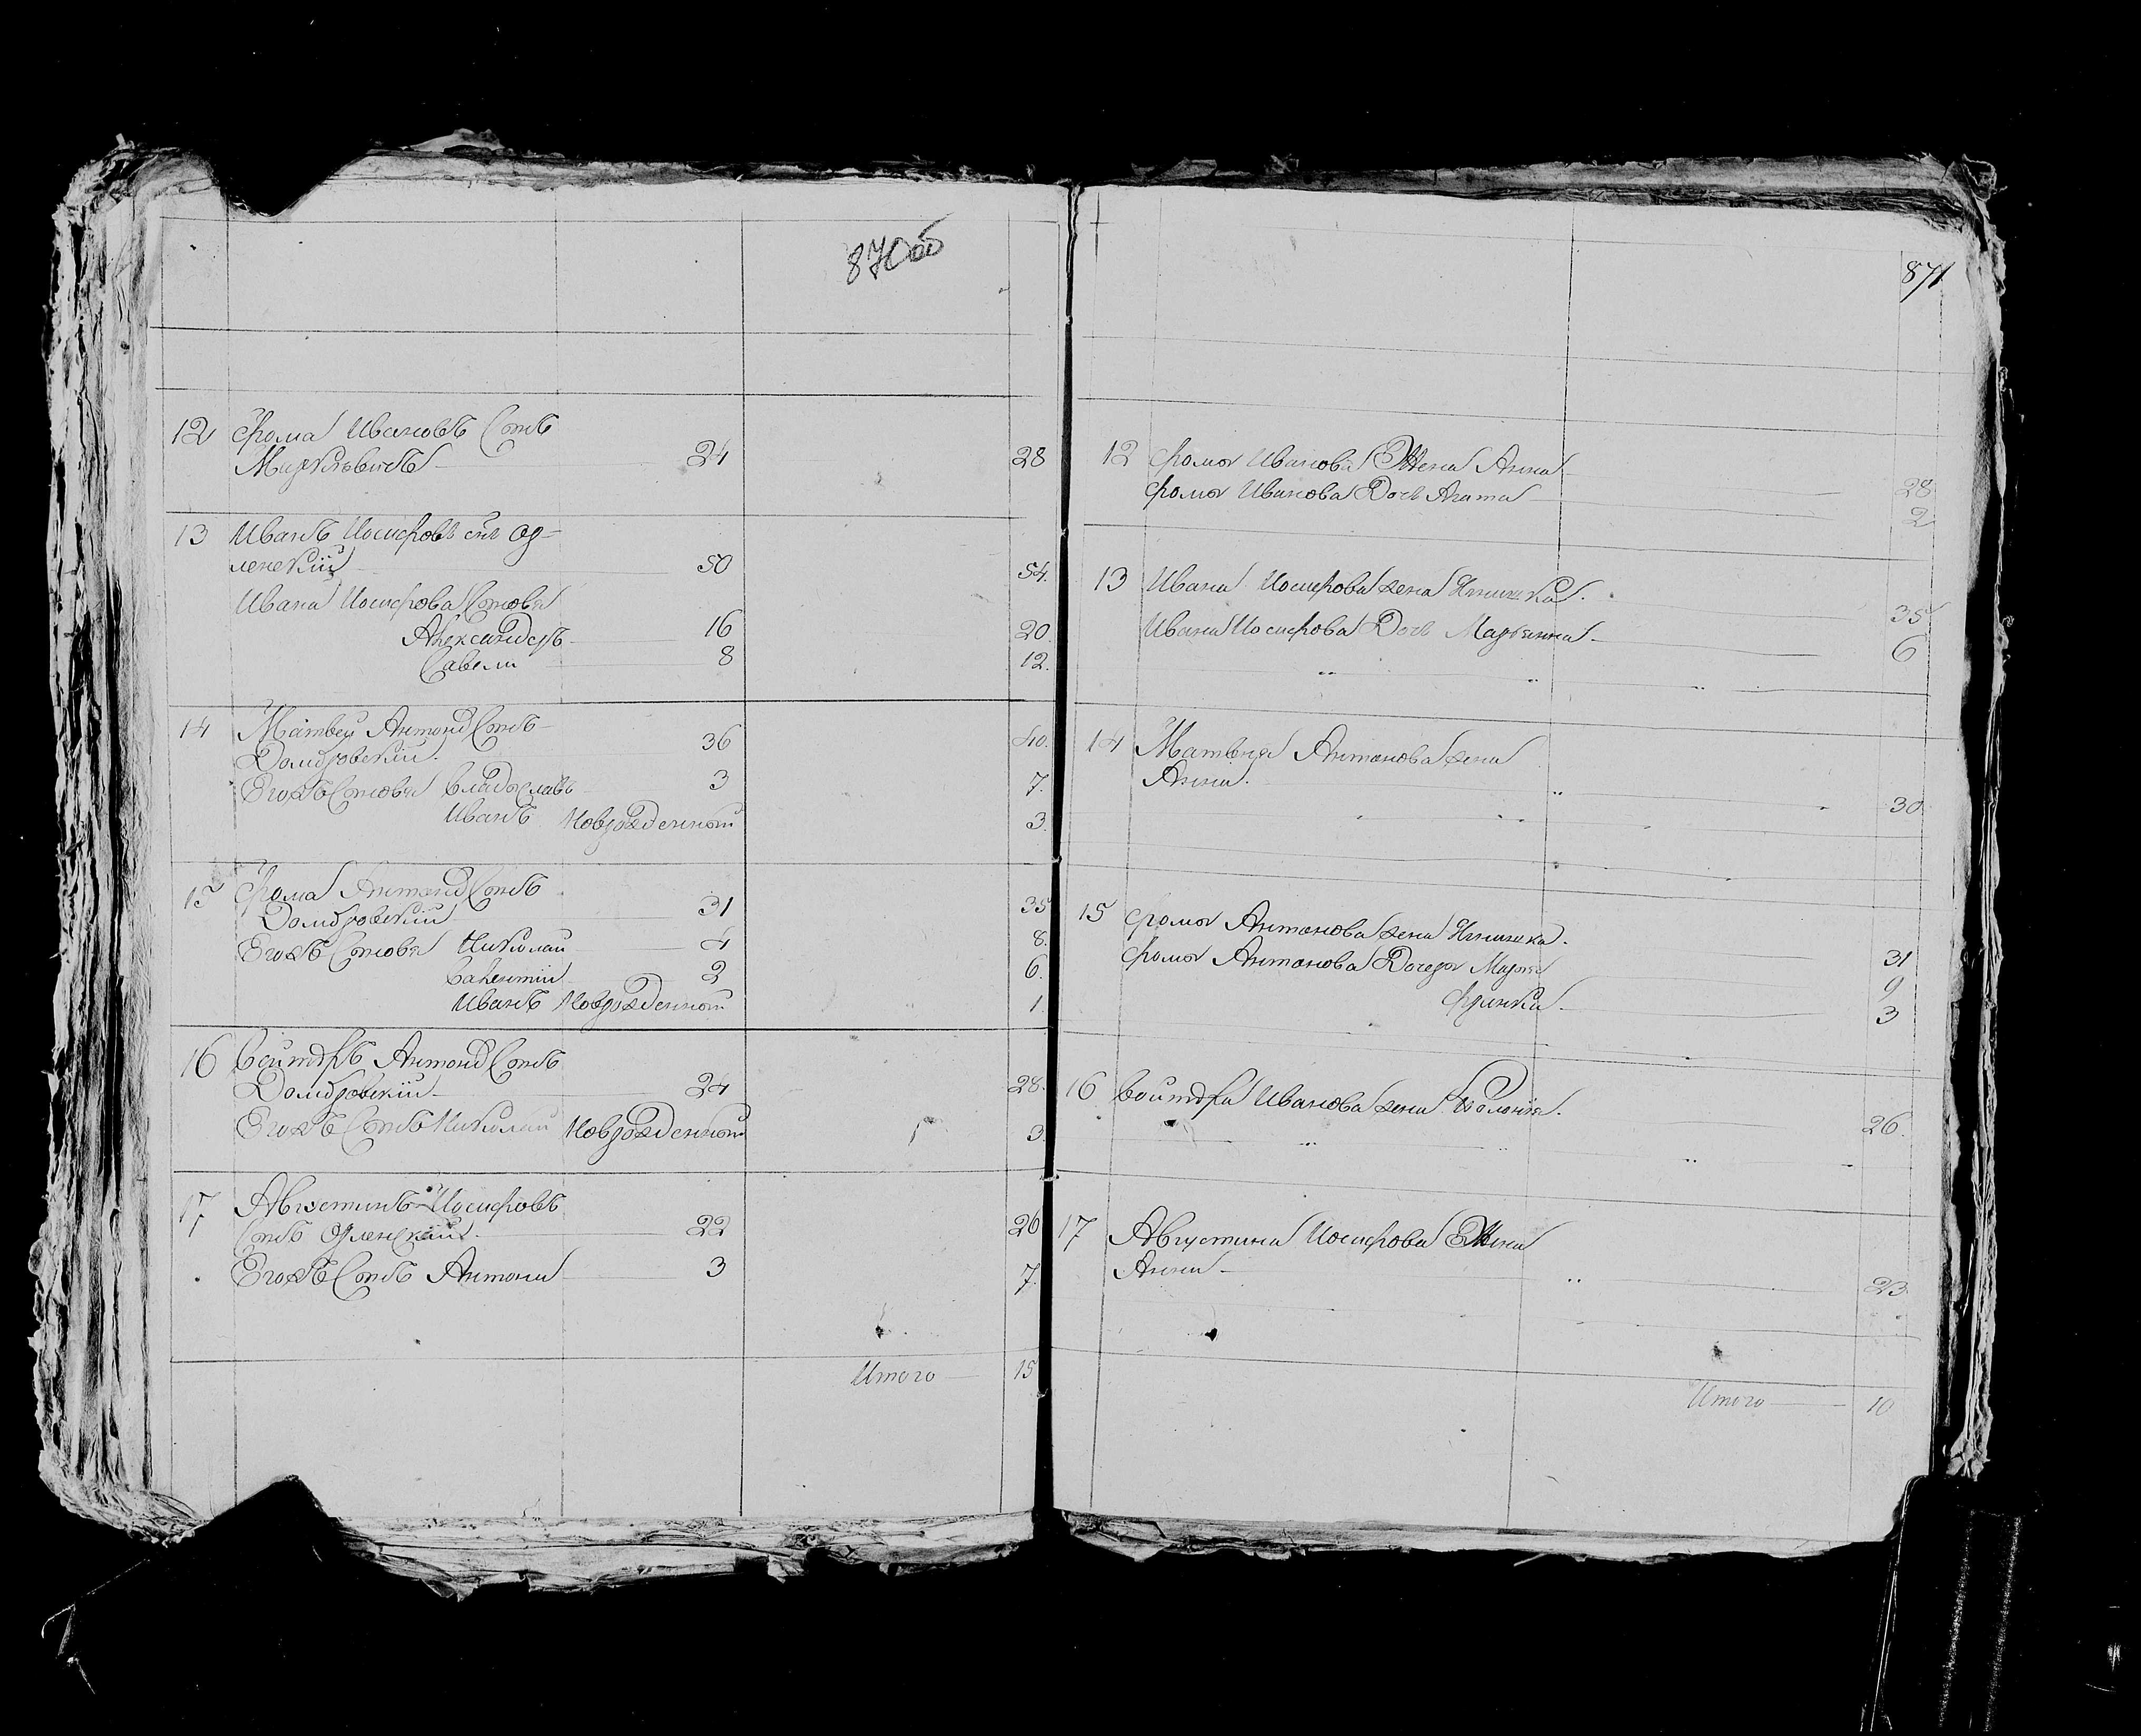 870об
12 Фома Ивановъ Сынъ
Маркевичъ 24 28
13 Иванъ Иосифовъ снъ Ор-
ленскій 50 54.
Ивана Иосифова Сыновья
Александеръ 16 20.
Савели 8 12.
14 Матвей Антонов Сынъ
Домбровскій. 36 40.
Егожъ Сыновья Владиславъ 3 7.
Иванъ Новрожденный 3.
15 Фома Антонов Сынъ
Домбровскій 31 35
Егожъ Сыновья Николай 4 8.
Валентій 2 6.
Иванъ Новрожденный 1.
16 Антонов Сынъ
Домбровскій 24 28.
Егожъ Сынъ Николай Новрожденный 3.
17 Августинъ Иосифовъ
Сынъ Орленскій. 22 26
Егожъ Сынъ Антони 3 7.
Итого 15
871
12 Фомы Иванова Жена Анна 28
Фомы Иванова Дочь Агата 2
13 Ивана Иосифова жена 35
Ивана Иосифова Дочь Марьянна 6
14 Матвея Антонова жена
Анна. 30.
15 Фомы Антонова жена 31
Фомы Антонова Дочери Марья 9
3
16 Иванова жена 26.
17 Августина Иосифова Жена
Анна 23.
Итого 10